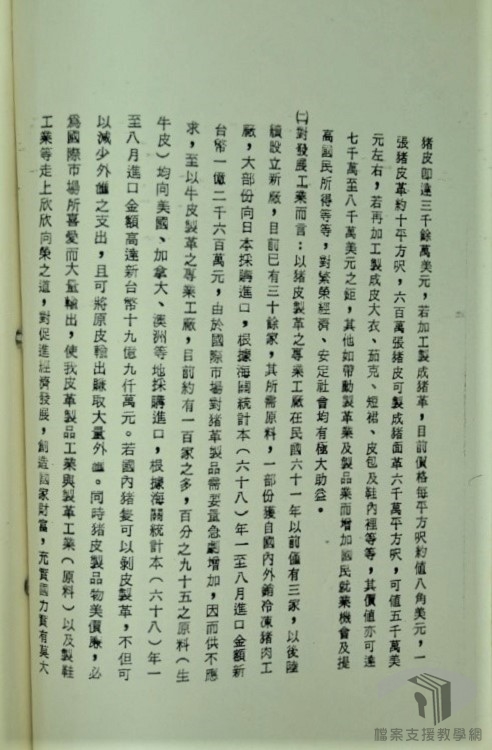 猪皮卽達三千餘萬美元，若加工製成猪革，目前價格每平方呎約值八角美元，一
張猪皮革約十平方呎，六百萬張猪皮可製成猪面革六千萬平方呎，可值五千萬美
元左右，若再加工製成皮大衣、茄克、短裙、皮包及鞋內裡等等，其價值亦可達
七千萬至八千萬美元之鉅，其他如帶動製革業及製品業而增加國民就業機會及提
高國民所得等等，對繁榮經濟、安定社會均有極大助益。
㈡對發展工業而言：以猪皮製革之專業工廠在民國六十一年以前僅有三家，以後陸
續設立新廠，目前已有三十餘家，其所需原料，一部份獲自國內外銷冷凍猪肉工
廠，大部份向日本採購進口，根據海關統計本（六十八）年一至八月進口金額新
台幣一億二千六百萬元，由於國際市場對猪革製品需要量急劇增加，因而供不應
求，至以牛皮製革之專業工廠，目前約有一百家之多，百分之九十五之原料（生
牛皮）均向美國、加拿大、澳洲等地採購進口，根據海關統計本（六十八）年一
至八月進口金額高達新台幣十九億九仟萬元。若國內猪隻可以剝皮製革，不但可
以減少外匯之支出，且可將原皮輸出賺取大量外匯。同時猪皮製品物美價廉，必
爲國際市場所喜愛而大量輸出，使我皮革製品工業與製革工業（原料）以及製鞋
工業等走上欣欣向榮之道，對促進經濟發展，創造國家財富，充實國力實有莫大
檔案支援教學網